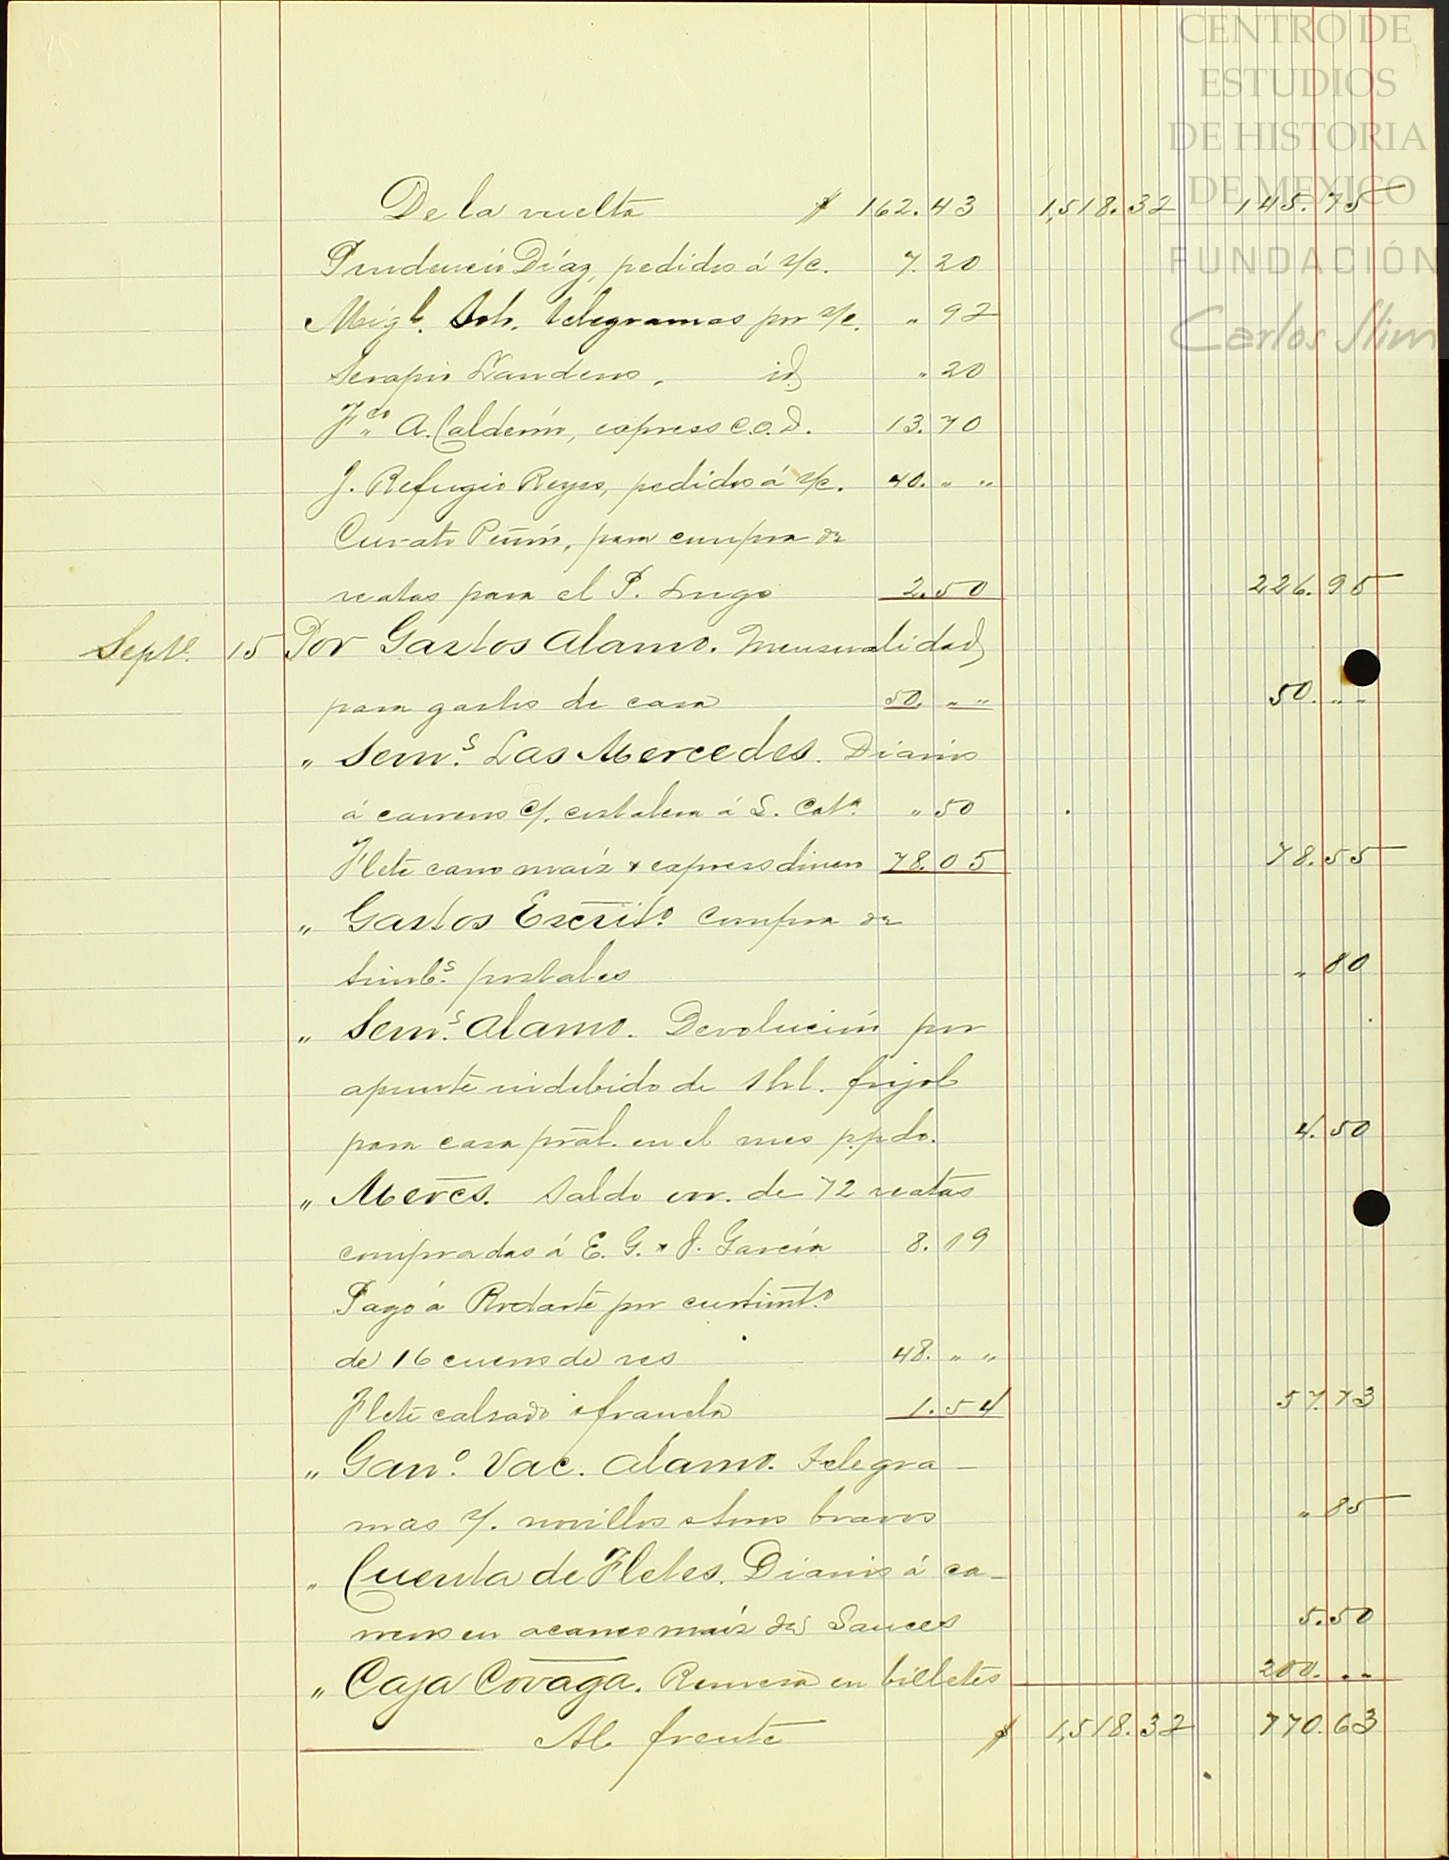 CENTRO DE
ESTUDIOS
DE HISTORIA
DE MEXICO
FUNDACIÓN
Carlos Slim
De la vuelta $ 162.43 1,518.32 145.75
Prudencio Díaz, pedidos á s/c. 7.20
Migl. Soh. telegramas por s/c. " 92
Serapio Landeros, id " 20
Fco. A. Calderón, express C.O.D. 13.70
J. Refugio Reyes, pedidos á s/c. 40. " "
Curato Peñón, para compra de
reatas para el P. Lugo 2.50 226.95
Septe. 15 Por Gastos Alamo. Mensualidad
para gastos de casa 50. " " 50. " "
" Sems. Las Mercedes. Diario
á carreros c/. á S. Cata. " 50
Flete carro maíz y express dinero 78.05 78.55
" Gastos Escrito. Compra de
timbs. postales " 80
" Sems. Alamo. Devolución por
apunte indebido de 1 hl. frijol
para casa pral. en el mes p.pdo. 4.50
" Mercs. Saldo de 72 reatas
compradas á E. G. y J. García 8.19
Pago á Rodarte por curtimto.
de 16 cueros de res 48. " "
Flete calzado y franela 1.54 57.73
" Gano. Vac. Alamo. Telegra-
mas s/. novillos y toros bravos " 85
" Cuenta de Fletes. Diario á ca-
rreros en acarreo maíz de Sauces 5.50
" Caja Covaga. Remesa en billetes 200. " "
Al frente $ 1,518.32 770.63